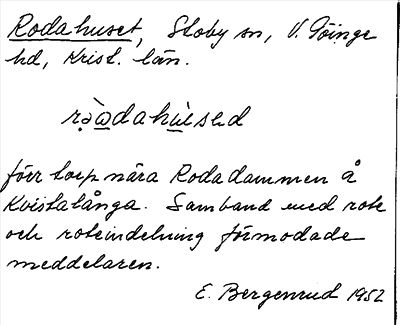 Rodahuset, Stoby sn, V. Göinge
hd, Krist. län.
förr torp nära Rodadammen å
Kvistalånga. Samband med rote
och roteindelning förmodade
meddelaren.
E. Bergenrud 1952